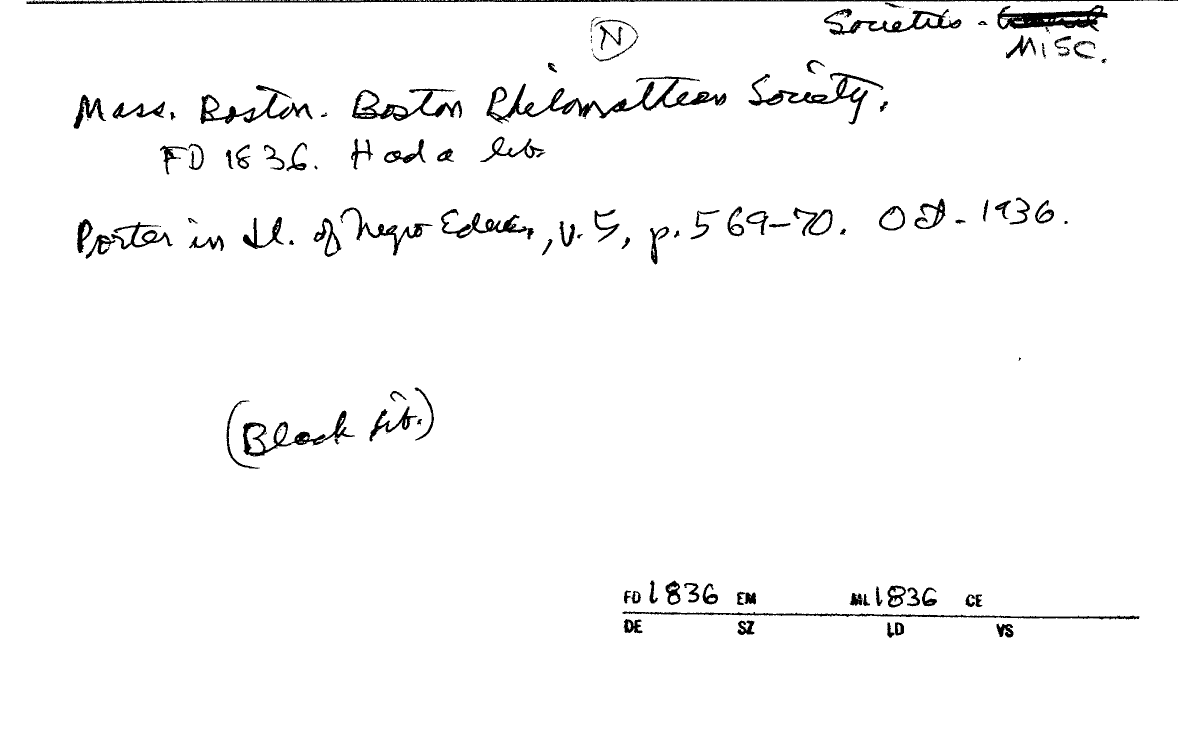 Societies - MISC.
N
Mass. Boston. Boston Philomathean Society.
FD 1836. Had a lib.
Porter in Jl. of Negro Educ., v. 5, p. 569-70. Oct. 1936.
(Black lib.)
FD 1836 EM ML 1836 CE
DE SZ LD VS